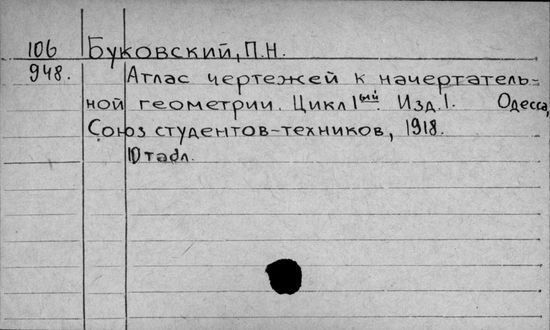 106 Буковский, П.Н.
948. Атлас чертежей к начертатель-
ной геометрии. Цикл 1ый Изд. 1. Одесса,
Союз студентов-техников, 1918.
10 табл.